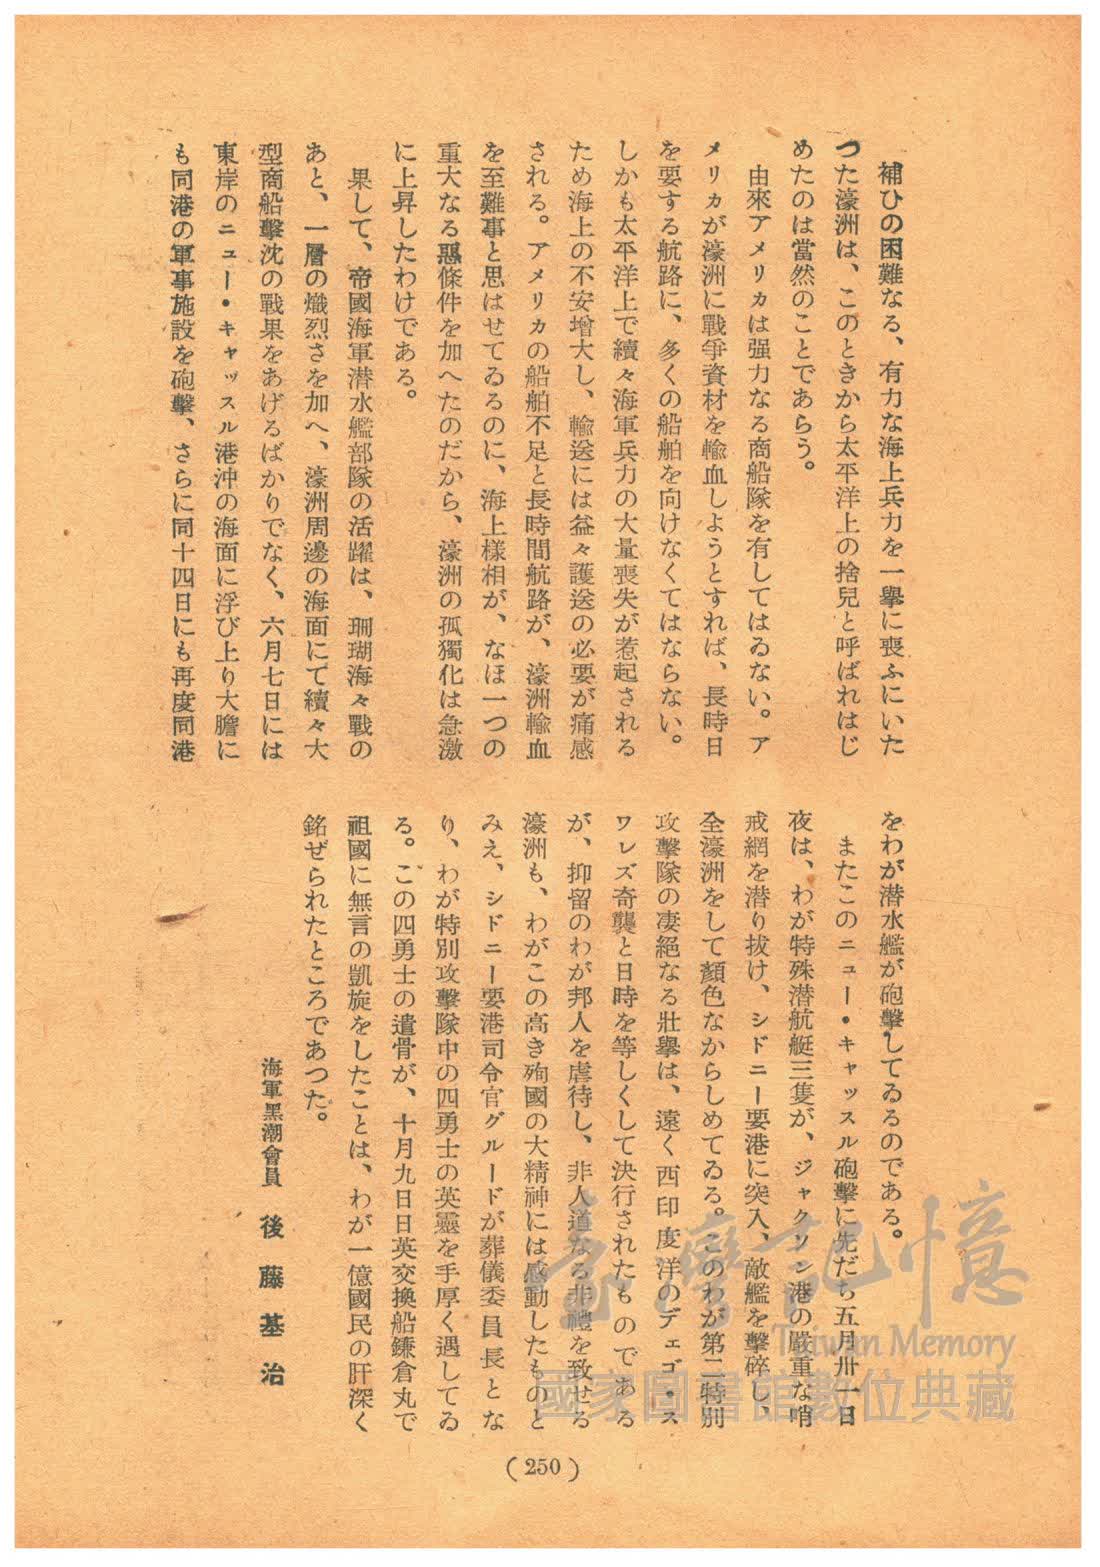 補ひの困難なる、有力な海上兵力を一擧に喪ふにいた
つた濠洲は、このときから太平洋上の捨兒と呼ばれはじ
めたのは當然のことであらう。
由來アメリカは强力なる商船隊を有してはゐない。ア
メリカが濠洲に戰爭資材を輸血しようとすれば、長時日
を要する航路に、多くの船舶を向けなくてはならない。
しかも太平洋上で續々海軍兵力の大量喪失が惹起される
ため海上の不安增大し、輸送には益々護送の必要が痛感
される。アメリカの船舶不足と長時間航路が、濠洲輸血
を至難事と思はせてゐるのに、海上樣相が、なほ一つの
重大なる惡條件を加へたのだから、濠洲の孤獨化は急激
に上昇したわけである。
果して、帝國海軍潜水艦部隊の活躍は、珊瑚海々戰の
あと、一層の熾烈さを加へ、濠洲周邊の海面にて續々大
型商船擊沈の戰果をあげるばかりでなく、六月七日には
東岸のニュー・キャッスル港沖の海面に浮び上り大膽に
も同港の軍事施設を砲擊、さらに同十四日にも再度同港
をわが潜水艦が砲擊してゐるのである。
またこのニュー・キャッスル砲擊に先だち五月卅一日
夜は、わが特殊潜航艇三隻が、ジャクソン港の嚴重な哨
戒網を潜り拔け、シドニー要港に突入、敵艦を擊碎し、
全濠洲をして顏色なからしめてゐる。このわが第二特別
攻擊隊の凄絕なる壯擧は、遠く西印度洋のデェゴ・ス
ワレズ奇襲と日時を等しくして決行されたものである
が、抑留のわが邦人を虐待し、非人道なる非禮を致せる
濠洲も、わがこの高き殉國の大精神には感動したものと
みえ、シドニー要港司令官グルードが葬儀委員長とな
り、わが特別攻擊隊中の四勇士の英靈を手厚く遇してゐ
る。この四勇士の遺骨が、十月九日日英交換船鎌倉丸で
祖國に無言の凱旋をしたことは、わが一億國民の肝深く
銘ぜられたところであつた。
海軍黑潮會員 後藤基治
(250)
臺灣記憶
Taiwan Memory
國家圖書館數位典藏